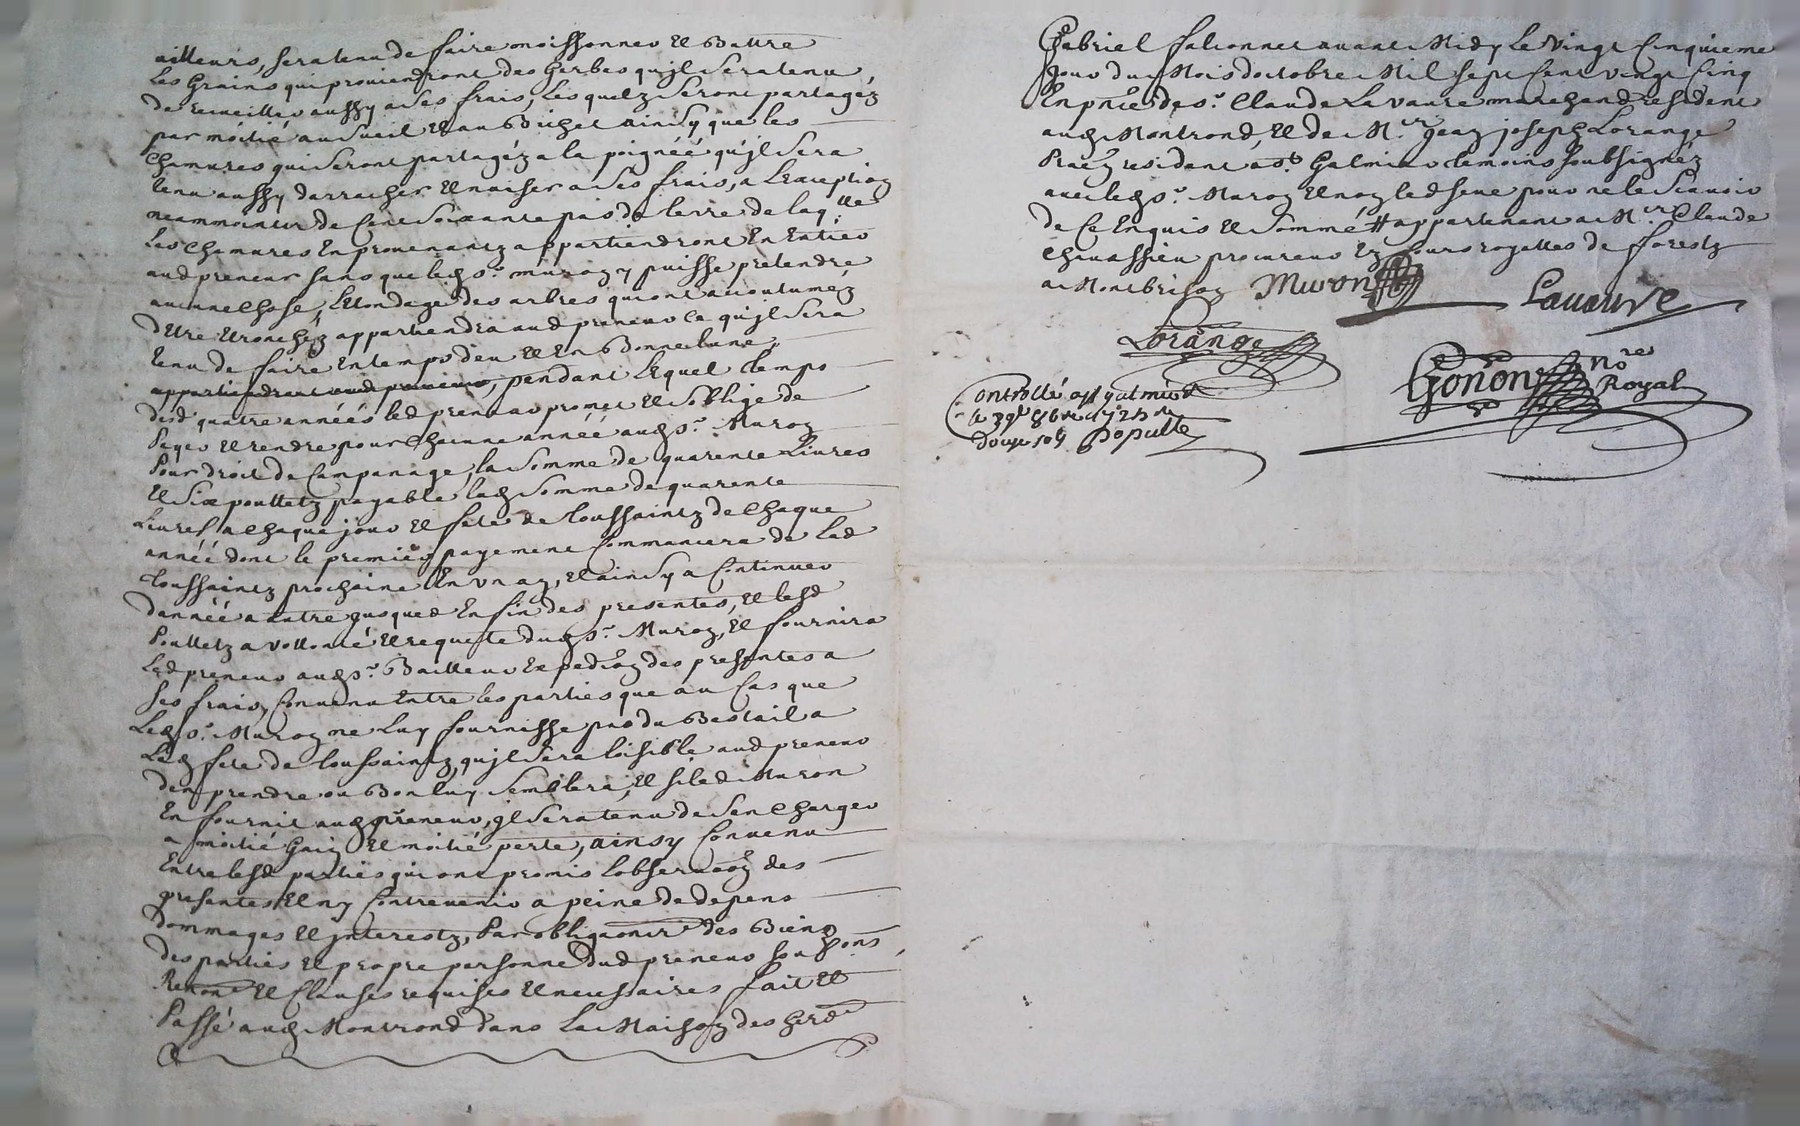 ailleurs, sera tenu de faire moissonner et Battre
Les Grains qui proviendront des Gerbes quil sera tenu
de recueillir aussy a ses frais, Lesquelz seront partagéz
par moitié au sueil et au Bichet ainsy que les
Chanures qui seront partagéz a la poignéé quil sera
tenu aussy darracher et naiser a ses frais, a Lexception
neammointz de Cent soixante pas de terre de laqlle
Les Chanures En prouenantz appartiendront En Entier
aud preneur sans que led sr. muron y puisse pretendre
aucune Chose, Letondage des arbres qui ont accoutuméz
detre etronchéz appartiendra aud preneur ce quil sera
tenu de faire En temps deu et En Bonne lune,
appartiendront aud preneur, pendant Lequel temps
desd quatre annéés led preneur promet et soblige de
Payer et rendre pour Chacune annéé aud sr. Muron
Pour droit de Campanage, la somme de quarente Livres
Et six poulletz payable lad somme de quarente
Livres, a chaque jour et fete de toussaintz de Chaque
annéé dont le premier payement Commancera de Lad
toussaintz prochaine En un an, et ainsy a Continuer
dannéé a autre jusques En fin des presentes, et lesd
Poulletz a vollonté et requete dud sr. Muron, et fournira
Led preneur aud sr. Bailleur Expedion des presentes a
ses frais, Convenu Entre les parties que au Cas que
Led sr. Muron ne Luy fournisse pas du Bestail a
Lad fete de toussaintz, quil sera loisible aud preneur
den prendre ou Bon luy semblera, et si led Muron
En fournit aud preneur, jl sera tenu de sen Charger
a moitié Gain et moitié perte, ainsy Convenu
Entre lesd parties qui ont promis Lobservaon des
presentes et ny Contrevenir a peine de depens
dommages et jnterestz, Par obligaons des Biens
des parties et propre personne dud preneur soubons
Renons et Clauses requises et necessaires fait et
Passé aud Montrond dans La Maison des herd
Gabriel falconnet avant Midy Le vingt Cinquieme
jour du Mois doctobre Mil sept Cent vingt Cinq
En pnce de sr. Claude Lavaure marchand resident
aud Montrond, et de Mr. jean joseph Lorange
Praen resident a st Galmier temoins soubsignéz
avec led sr. Muron et non led seue pour ne le scavoir
de Ce Enquis et sommé # appartenant a Mr. Claude
Chavassieu procureur Ez Cours royalles de forestz
a Montbrison Muron Lavaure
Lorange
Gonon nore
Royal
Controllé a st galmier
le 30e 8bre 1725 re
douze sols Populle